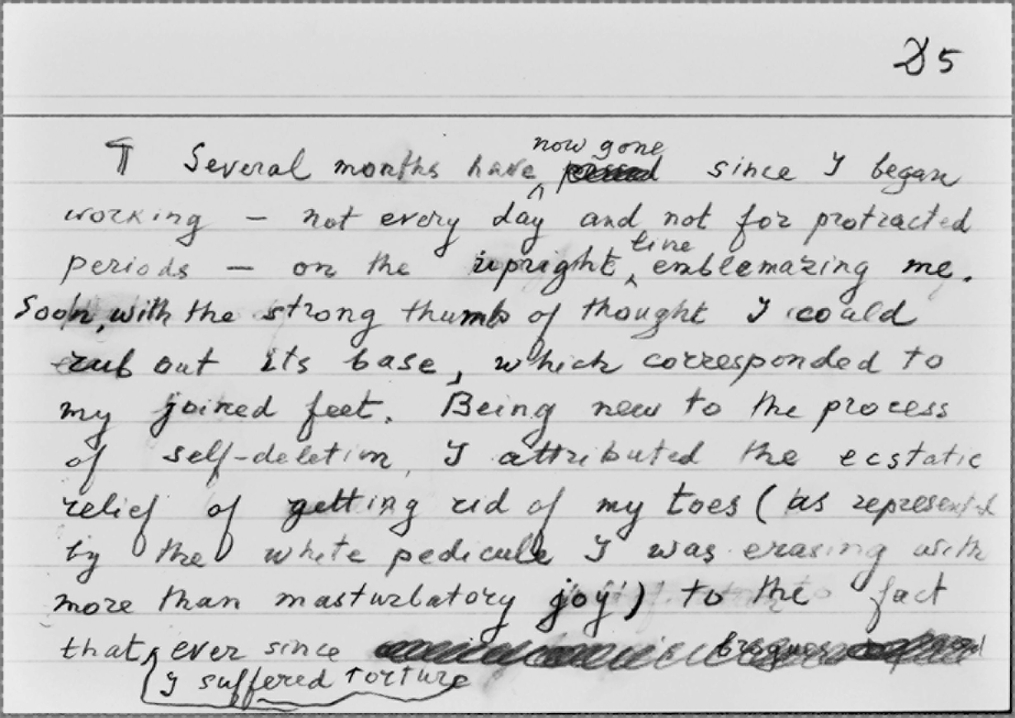 D5
¶ Several months have now gone since I began
working – not every day and not for protracted
periods – on the upright line emblemazing me.
Soon, with the strong thumb of thought I could
rub out its base, which corresponded to
my joined feet. Being new to the process
of self-deletion, I attributed the ecstatic
relief of getting rid of my toes (as represented
by the white pedicule I was erasing with
more than masturbatory joy) to the fact
that I suffered torture ever since
brogues